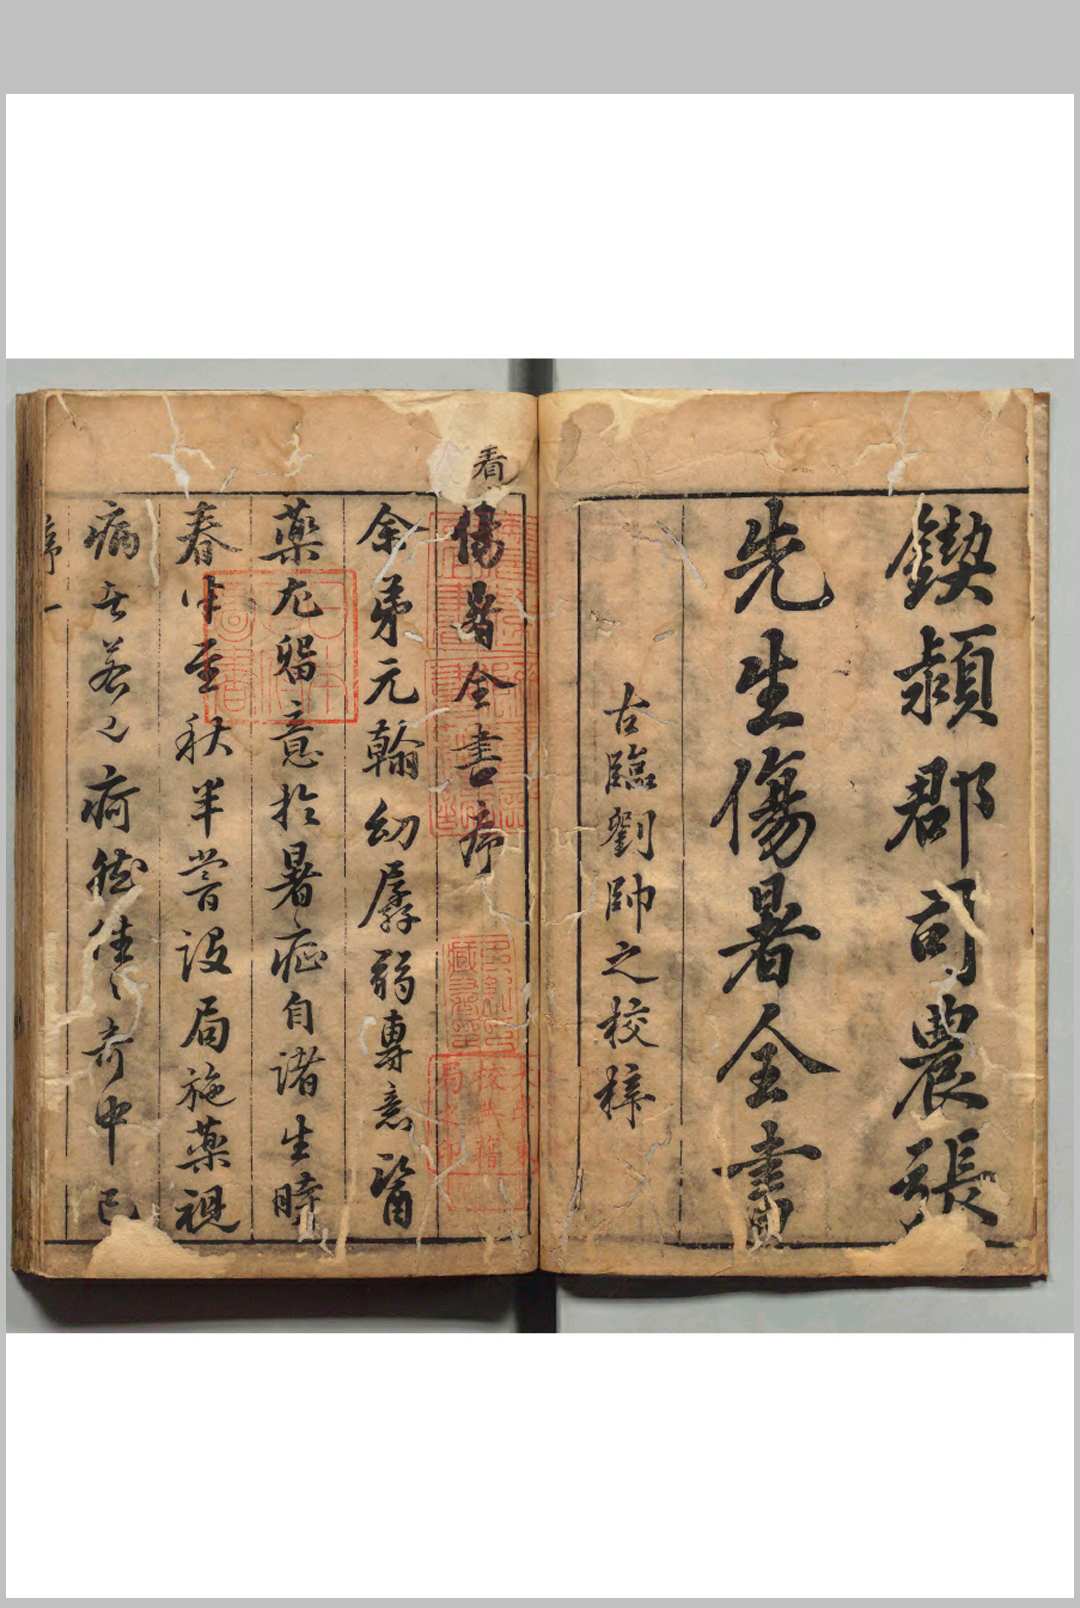 鍥潁郡司農張
先生傷暑全書
古臨劉帥之校梓
看
傷暑全書序
余弟元翰幼孱弱專意醫
藥尤留意於暑症自諸生時
春中至秋半嘗設局施藥視
病者若己疴然往々奇中已
序 一